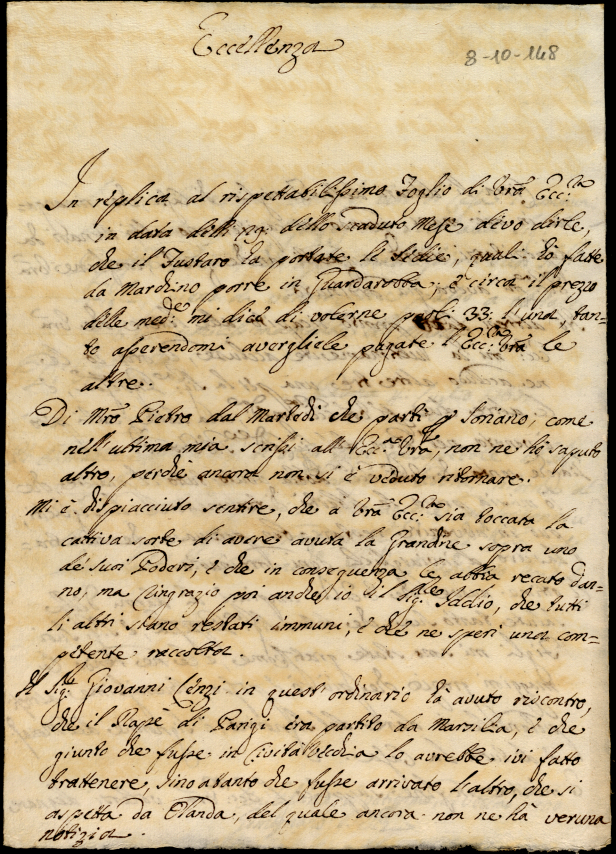 Eccellenza
8-10-148
In replica al rispettabilissimo Foglio di Vrã Ecc:za
in data delli 29: dello scaduto Mese devo dirle,
che il Fustaro hà portate le sedie, quali hò fatte
da Marchino porre in Guardarobba, e circa il prezzo
delle med:e mi dice di volerne paoli 33: l'una, tan-
to asserendomi avergliele pagate l'Ecc:za Vrã le
altre.
Di Mrõ Pietro dal Martedi che partì p Soriano, come
nell'ultima mia scrissi all'Ecc:za Vrã, non ne hò saputo
altro, perche ancora non si è veduto ritornare.
Mi è dispiacciuto sentire, che a Vrã Ecc:za sia toccata la
cattiva sorte di avere avuta la Grandine sopra uno
de suoi Poderi, e che in conseguenza le abbia recato dan-
no, ma ringrazio poi anche io il Sig:re Iddio, che tutti
li altri siano restati immuni, e che ne speri una com-
petente raccolta.
Il Sig:re Giovanni in quest'ordinario hà avuto riscontro,
che il Rapè di Parigi era partito da Marsilia, e che
giunto che fusse in Civitavecchia lo avrebbe ivi fatto
trattenere, sino atanto che fusse arrivato l'altro, che si
aspetta da Olanda, del quale ancora non ne hà veruna
notizia.